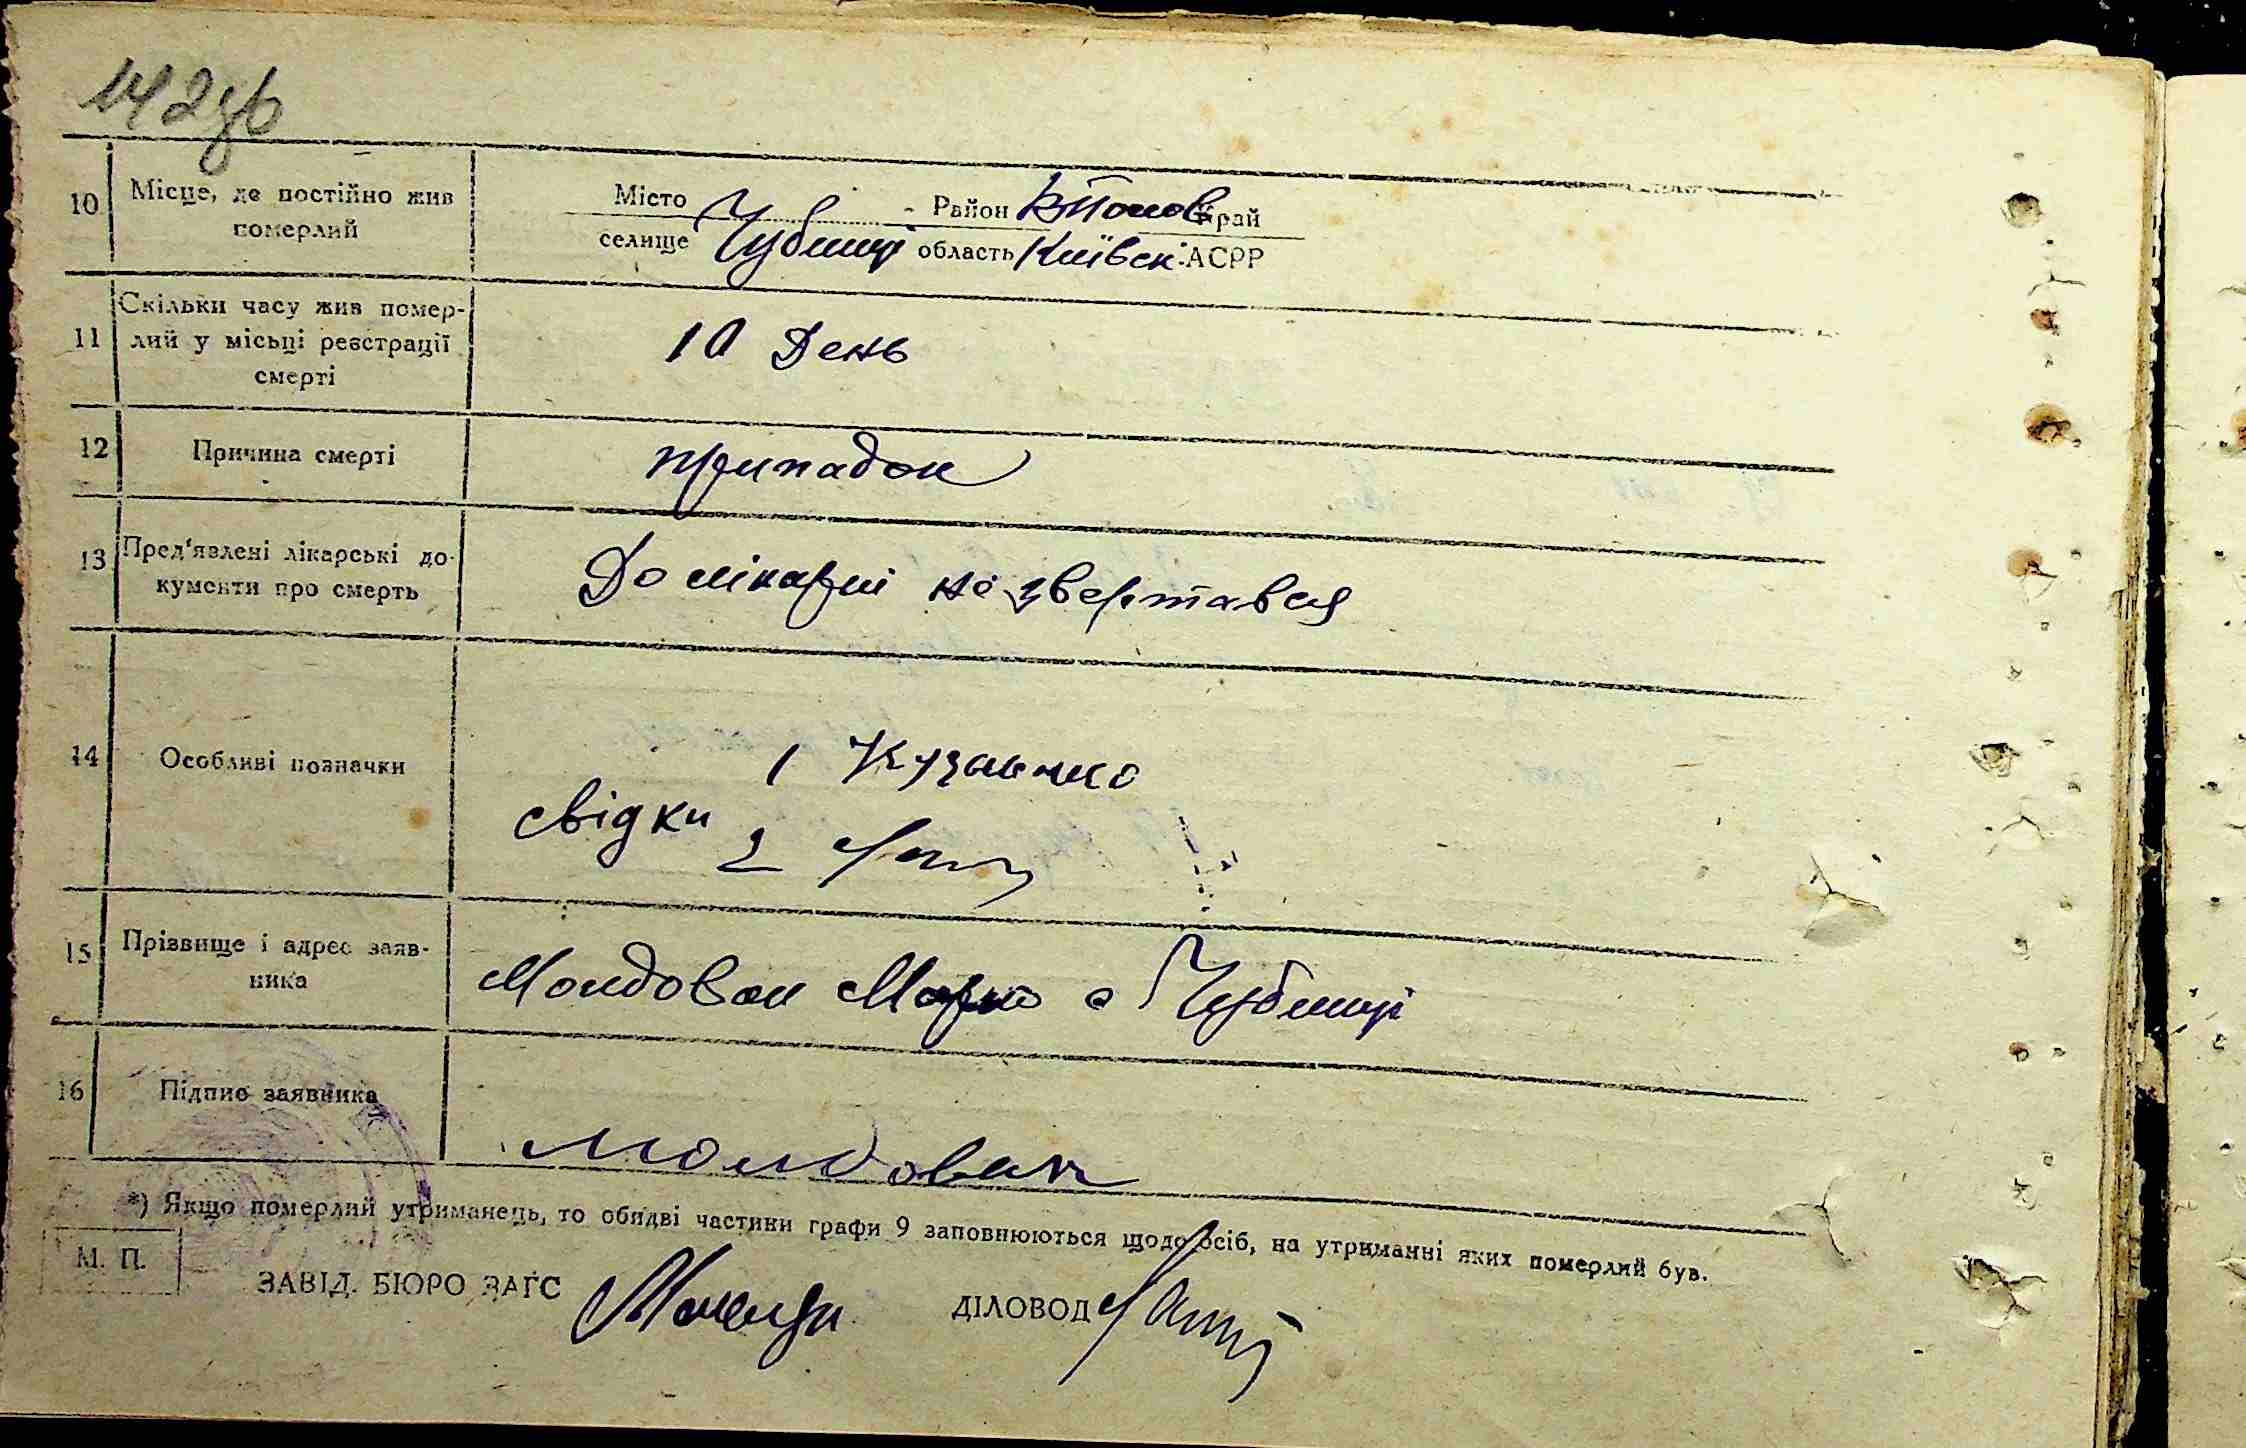 142зв
10 Місце, де постійно жив Місто Чубинці Район Край
померлий селище область Київськ. АСРР
11 Скільки часу жив помер-
лий у місьці реєстрації
смерті
10 День
12 Причина смерті припадок
13 Пред'явлені лікарські до-
кументи про смерть
До лікарні не звертався
14 Особливі позначки
1 Кузьменко
свідки 2
15 Прізвище і адрес заяв-
ника
Молдован Марко с Чубинці
16 Підпис заявника
Молдован
*) Якщо померлий утриманець, то обидві частини графи 9 заповнюються щодо осіб, на утриманні яких померлий був.
М. П.
ЗАВІД. БЮРО ЗАГС ДІЛОВОД